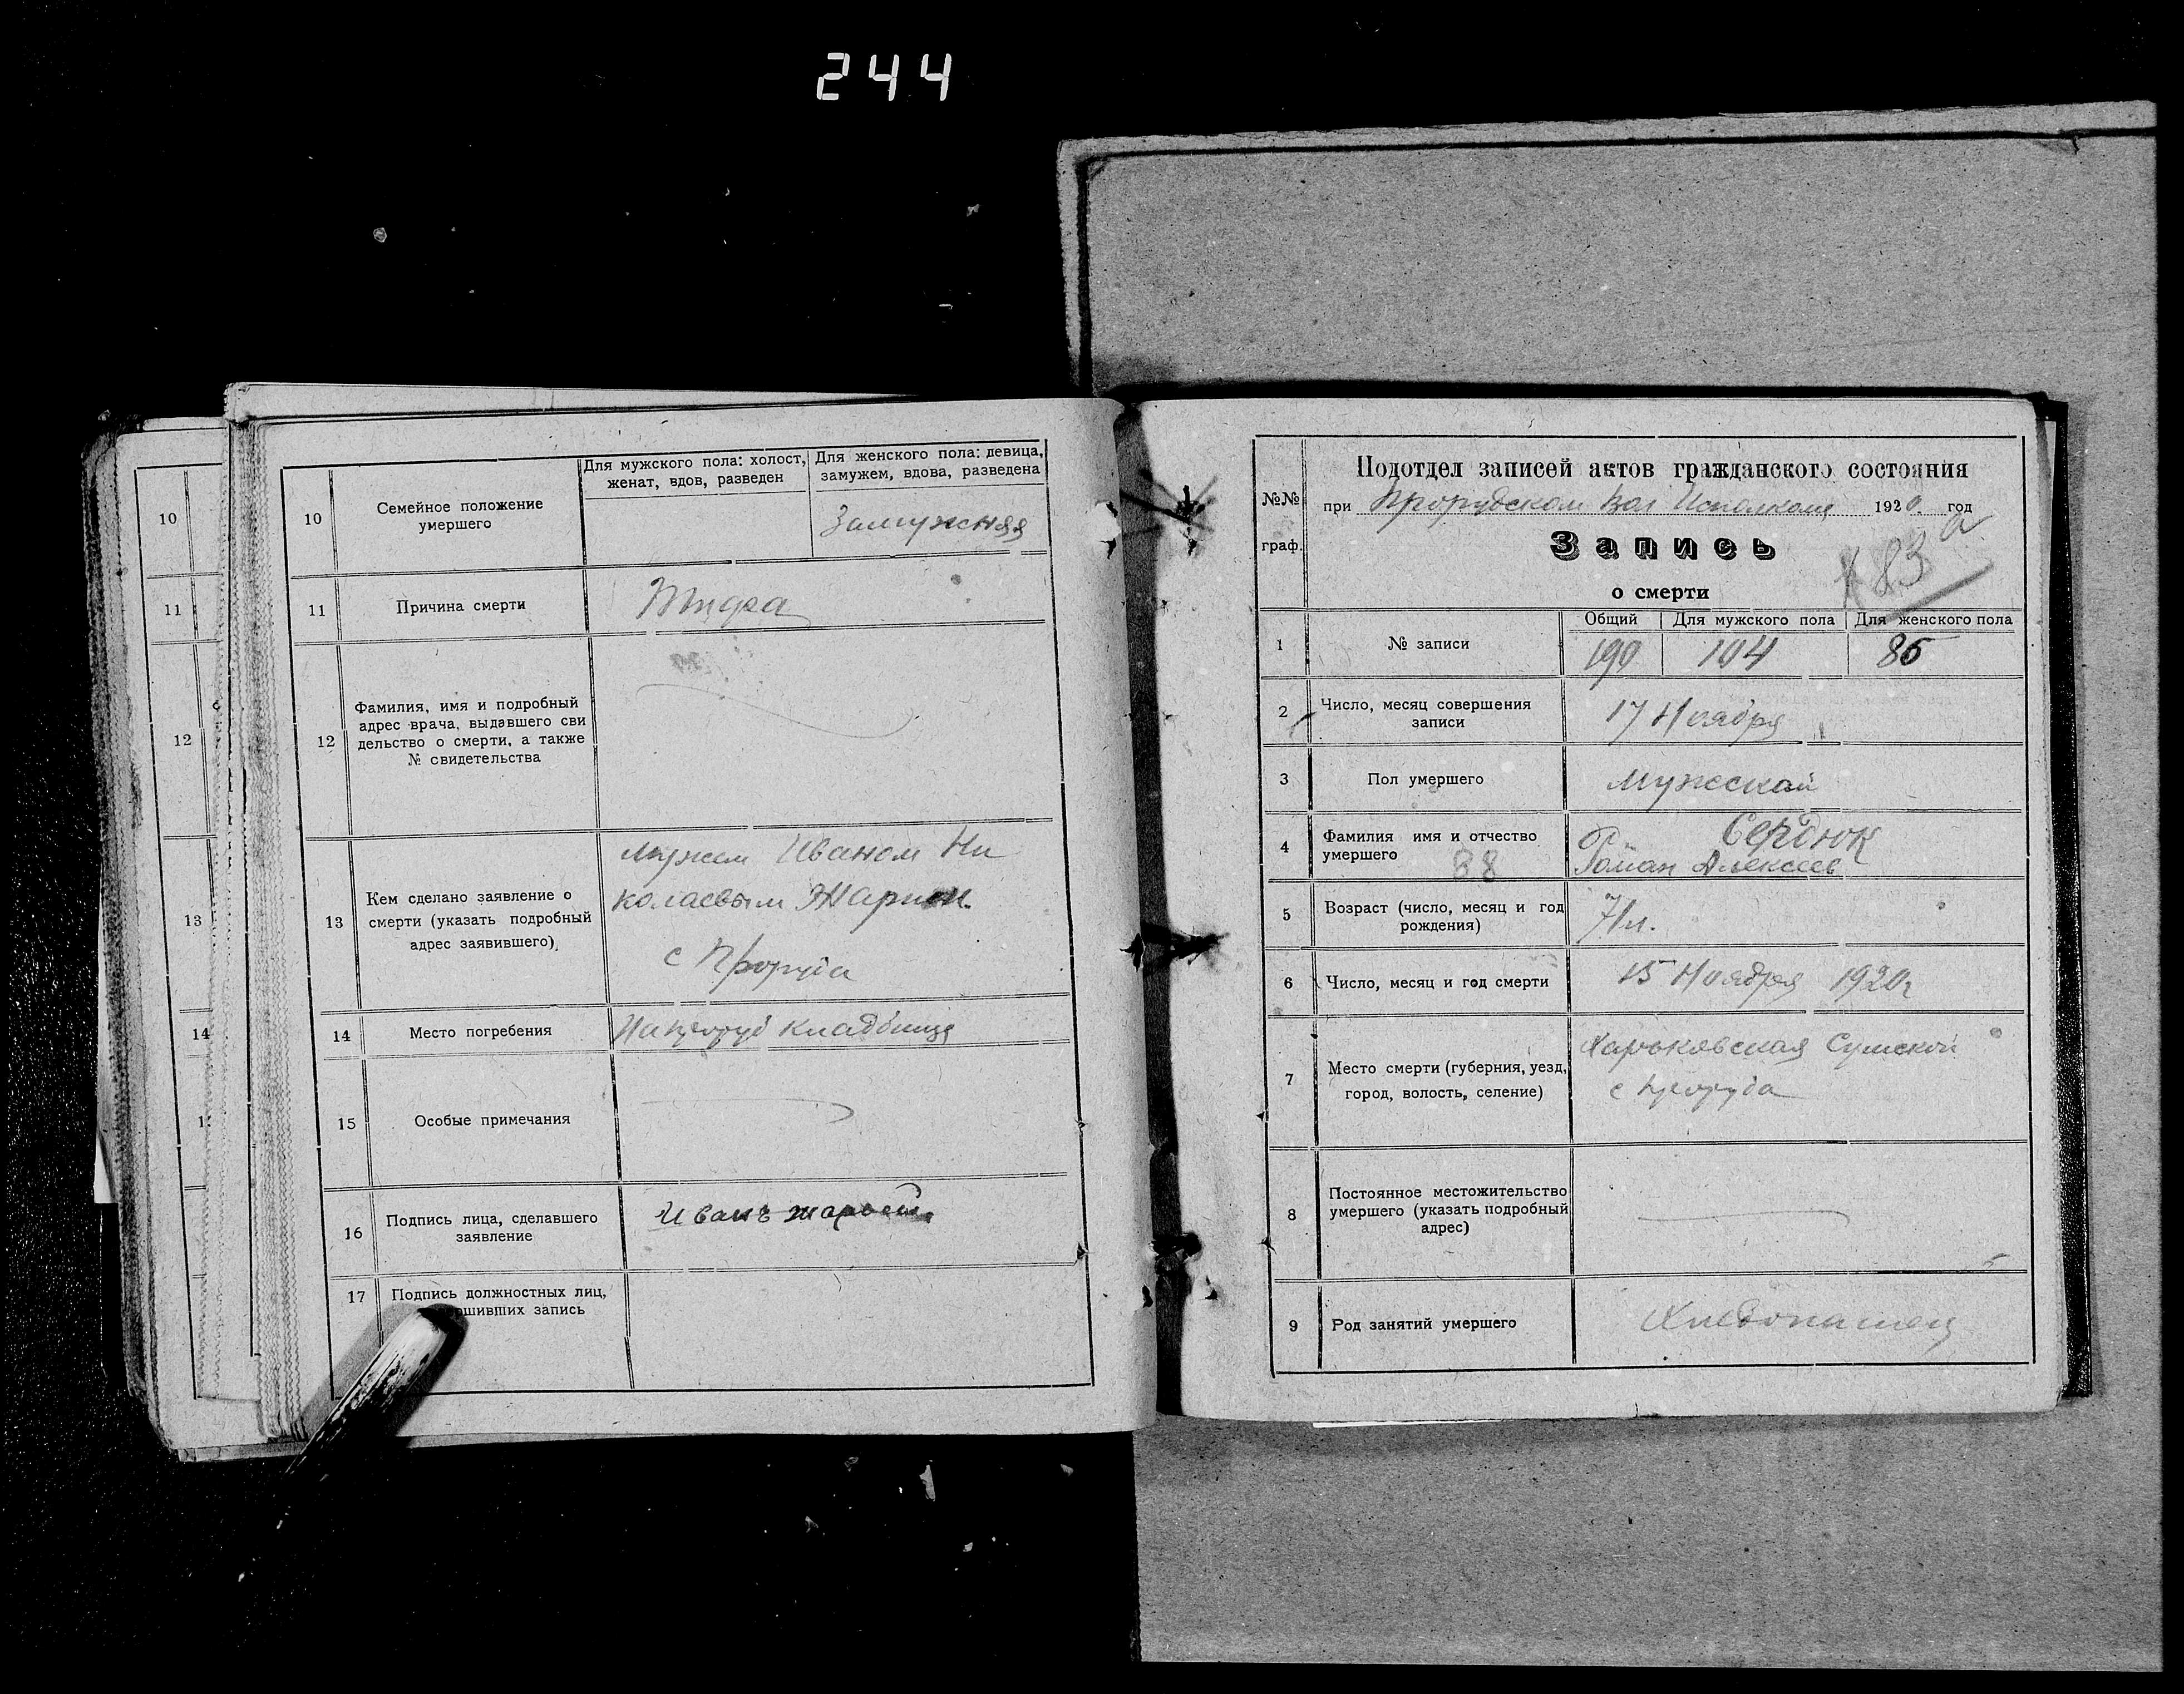 244
10
11
12
13
14
10
Семейное положение
умершего
Для мужского пола: холост,
женат, вдов, разведен
Для женского пола: девица,
замужем, вдова, разведена
Замужняя
11
Причина смерти
12
Фамилия, имя и подробный
адрес врача, выдавшего сви
дельство о смерти, а также
№ свидетельства
13
Кем сделано заявление о
смерти (указать подробный
адрес заявившего)
мужем Иваном Ни
колаевым
с Проруба
14
Место погребения
На проруб кладбище
15
Особые примечания
16
Подпись лица, сделавшего
заявление
Иванъ
17
Подпись должностных лиц,
ршивших запись
№№
граф.
Подотдел записей актов гражданского состояния
при Прорубском Вол Исполкоме 1920. год
Запись
о смерти
83 а
1
№ записи
Общий
Для мужского пола
Для женского пола
190
104
86
2
Число, месяц совершения
записи
17 Ноября
3
Пол умершего
Мужской
4
Фамилия имя и отчество
умершего
88
Сердюк
Роман Алексеев
5
Возраст (число, месяц и год
рождения)
71 л.
6
Число, месяц и год смерти
15 Ноября 1920 г
7
Место смерти (губерния, уезд,
город, волость, селение)
Харьковская Сумской
с Проруба
8
Постоянное местожительство
умершего (указать подробный
адрес)
9
Род занятий умершего
Хлебопашец